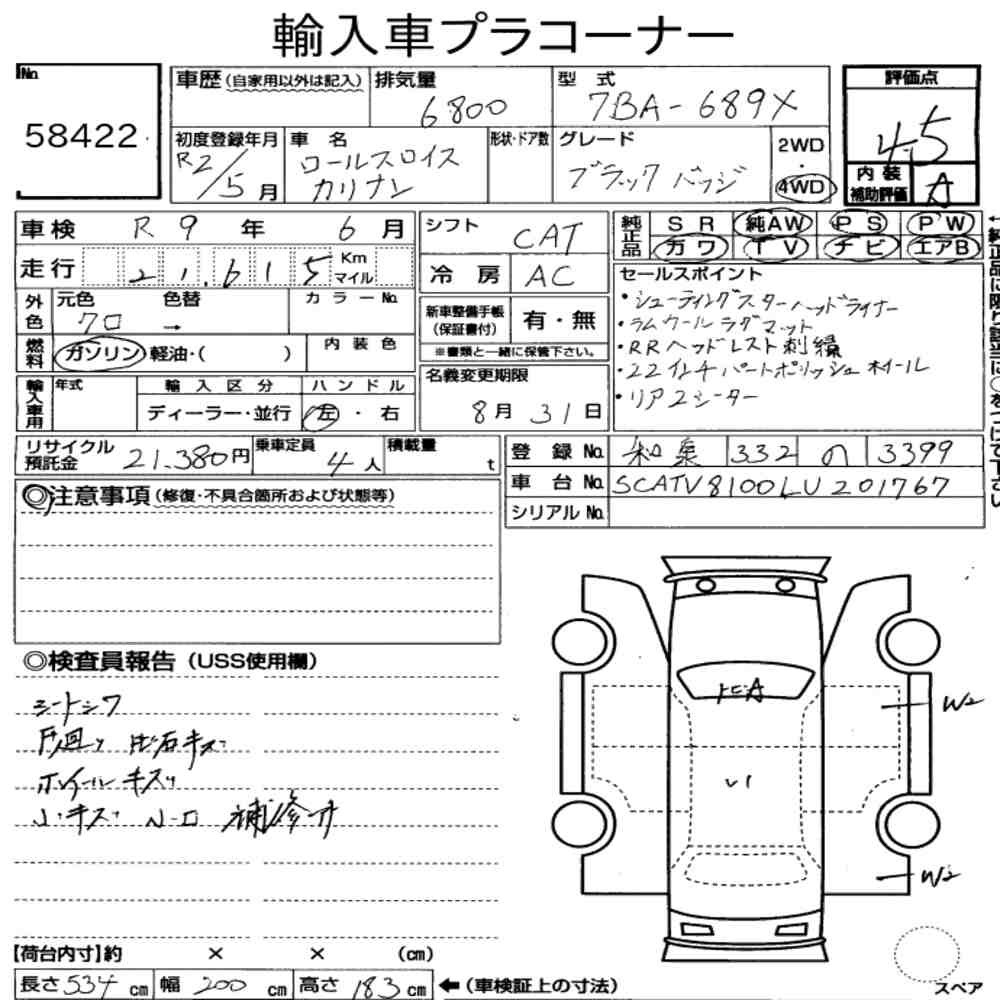 輸入車プラコーナー
No.
58422
車歴(自家用以外は記入)
排気量
6800
型 式
7BA-689X
評価点
4.5
初度登録年月
R2/5月
車 名
ロールスロイス
カリナン
形状・ドア数
グレード
ブラックバッジ
2WD
・
4WD
内 装
補助評価
A
車検 R 9 年 6 月
走行 21,615 Km
マイル
シフト
CAT
冷 房
AC
純正品
SR 純AW PS PW
カワ TV ナビ エアB
セールスポイント
・シューティングスターヘッドライナー
・ラムウールラグマット
・RRヘッドレスト刺繍
・22インチパートポリッシュホイール
・リア2シーター
外色
元色 色替
クロ →
カラーNo.
燃料
ガソリン 軽油・( )
内 装 色
新車整備手帳
(保証書付)
有・無
※書類と一緒に保管下さい。
輸入車用
年式
輸 入 区 分
ディーラー・並行
ハンドル
左・右
名義変更期限
8月31日
リサイクル
預託金 21.380円
乗車定員
4人
積載量
t
登 録 No. 和泉 332 の 3399
車 台 No. SCATV8100LU201767
シリアルNo.
←純正品に限り該当に○をつけて下さい
◎注意事項(修復・不具合箇所および状態等)
◎検査員報告(USS使用欄)
シートシワ
内廻り 飛石キズ
ホイールキズ
小キズ
補修才
W2
W2
【荷台内寸】約 × × (cm)
長さ534cm 幅200cm 高さ183cm ←(車検証上の寸法)
スペア